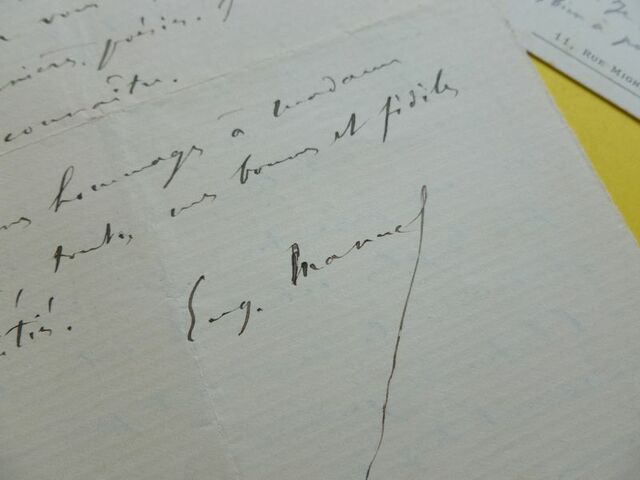 vous
poésies.
connaître.
hommages à Madame
toutes mes bonnes et fidèles
Eug. Manuel
Je
11, RUE MIGN